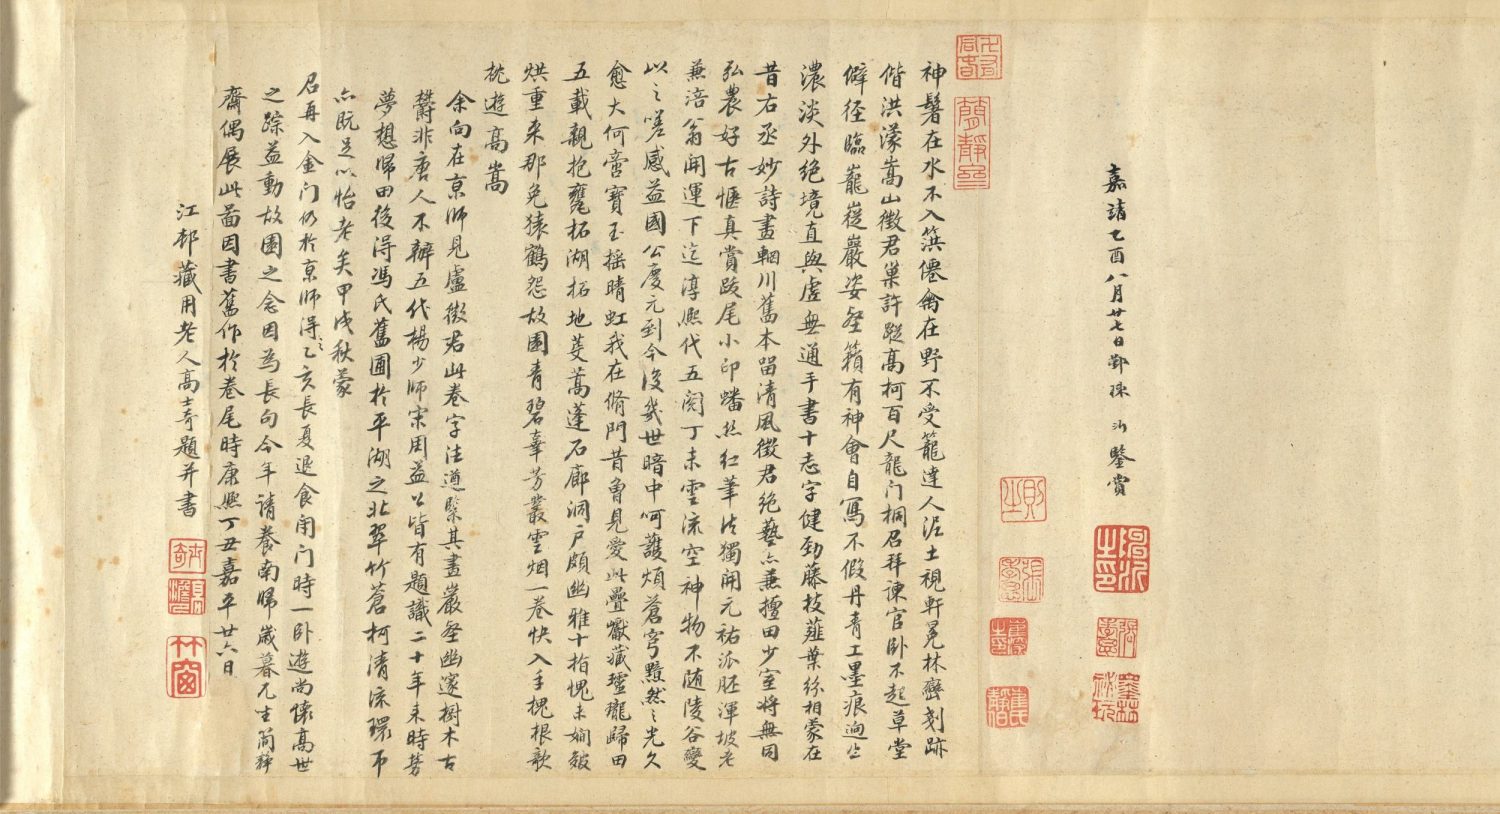 嘉靖乙酉八月廿七日鄧 鑒賞
神鬐在水不入筌僊禽在野不受籠達人泥土視軒冕林巒刻跡
偕洪濛嵩山徵君巢許蹤高柯百尺龍门桐召拜諫官卧不起草堂
僻径臨巃嵸巖姿壑籟有神會自寫不假丹青工墨痕
濃淡外絶境直與虛無通手書十志字健勁藤枝薤葉絲相蒙在
昔右丞妙詩畫輞川舊本留清風徵君絶藝亦兼擅田少室將無同
弘農好古愜真賞跋尾小印蟠絲红筆法獨開元祐派胚渾坡老
兼涪翁開運下迄淳熙代五阅丁未雲流空神物不随陵谷變
以之嗟感益國公慶元到今淩幾世暗中呵護煩蒼穹黯然之光久
愈大何啻寶玉摇晴虹我在脩門昔曾見愛此疊巘藏瓏瓏歸田
五載親抱甕拓湖拓地芟蒿蓬石廊洞户頗幽雅十拍愧未
烘重来那免猿鶴怨故園青碧辜芳叢雲烟一卷快入手槐根歌
枕遊高嵩
余向在京師見盧徵君此卷字法遒繄其畫巖壑幽邃樹木古
欝非唐人不辦五代楊少師宋周益公皆有題識二十年来時勞
夢想歸田後得馮氏舊圃於平湖之北翠竹蒼柯清流環帀
亦既足以怡老矣甲戌秋蒙
召再入金门仍於京師得之乙亥長夏退食闭门時一卧遊尚懷高世
之踪益動故園之念因為長句今年請養南歸歲暮无生简静
齋偶展此啚因書舊作於卷尾時康熙丁丑嘉平廿六日
江邨藏用老人高士奇題并書
簡靜齋
竹窗